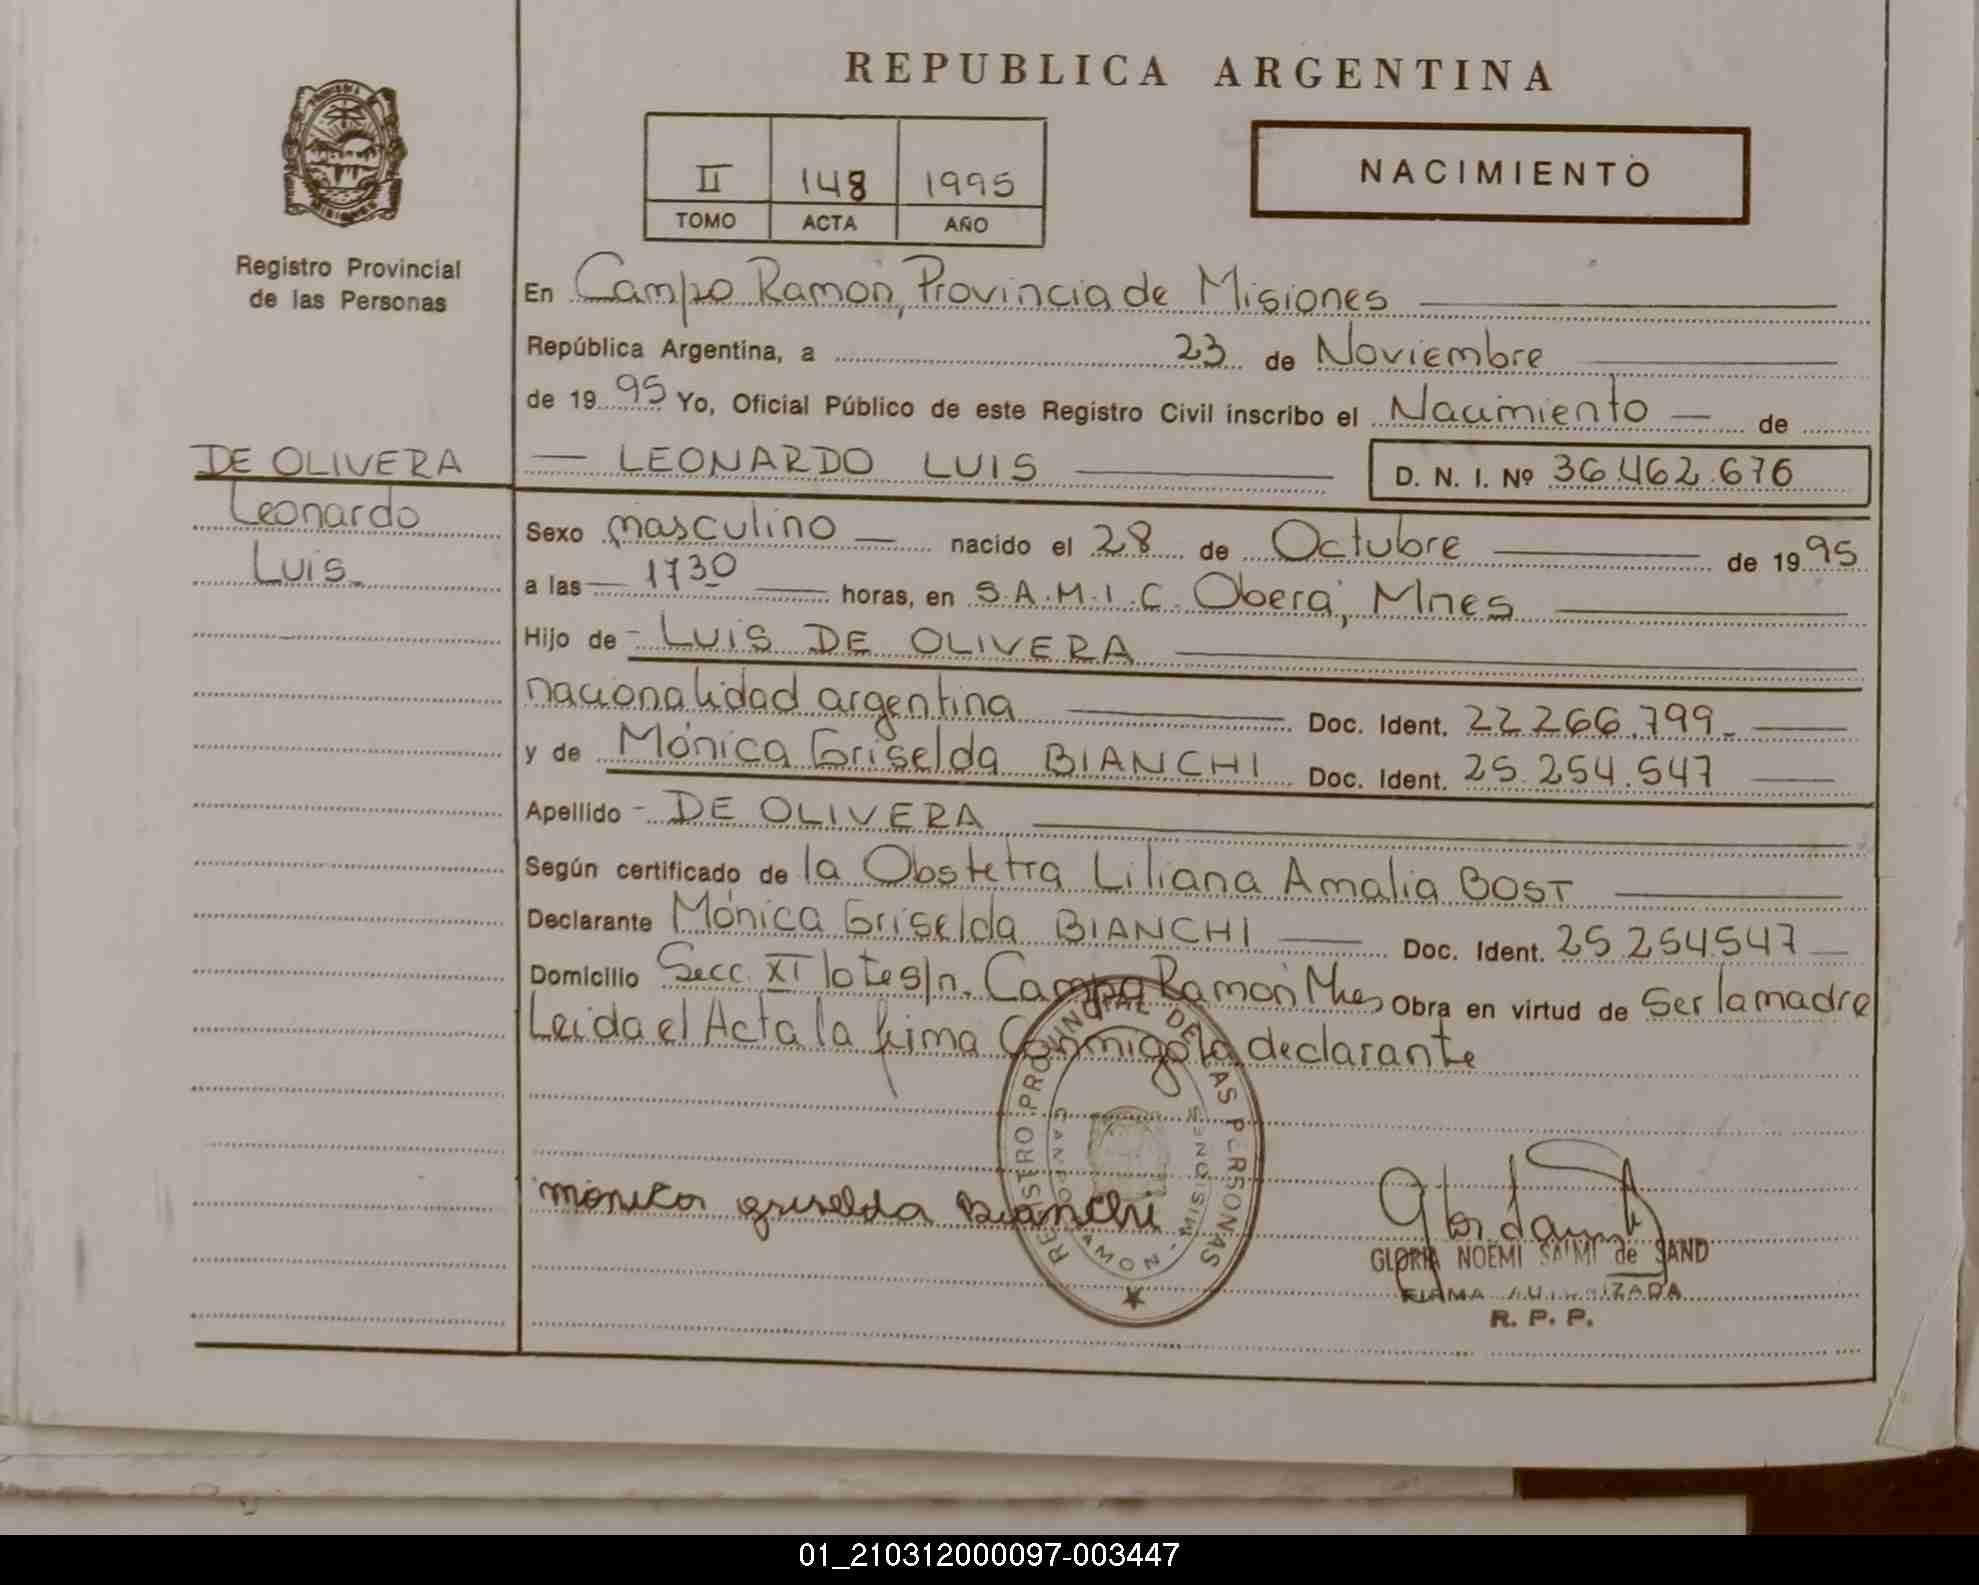 REPUBLICA ARGENTINA
II 148 1995
TOMO ACTA AÑO
NACIMIENTO
Registro Provincial
de las Personas
En Campo Ramón, Provincia de Misiones
República Argentina, a 23 de Noviembre
de 1995 Yo, Oficial Público de este Registro Civil inscribo el Nacimiento de
DE OLIVERA
Leonardo
Luis
LEONARDO LUIS D. N. I. Nº 36.462.676
Sexo masculino nacido el 28 de Octubre de 1995
a las 1730 horas, en S.A.M.I.C. Oberá, Mnes
Hijo de LUIS DE OLIVERA
nacionalidad argentina Doc. Ident. 22.266.799
y de Mónica Griselda BIANCHI Doc. Ident. 25.254.547
Apellido DE OLIVERA
Según certificado de la Obstetra Liliana Amalia BOST
Declarante Mónica Griselda BIANCHI Doc. Ident. 25.254.547
Domicilio Secc. XI lote s/n. Campo Ramón Mnes Obra en virtud de Ser la madre
Leida el Acta la firma Conmigo la declarante
REGISTRO PROVINCIAL DE LAS PERSONAS
CAMPO RAMON - MISIONES
monica griselda Bianchi
GLORIA NOEMI de SAND
FIRMA AUTORIZADA
R. P. P.
01_210312000097-003447